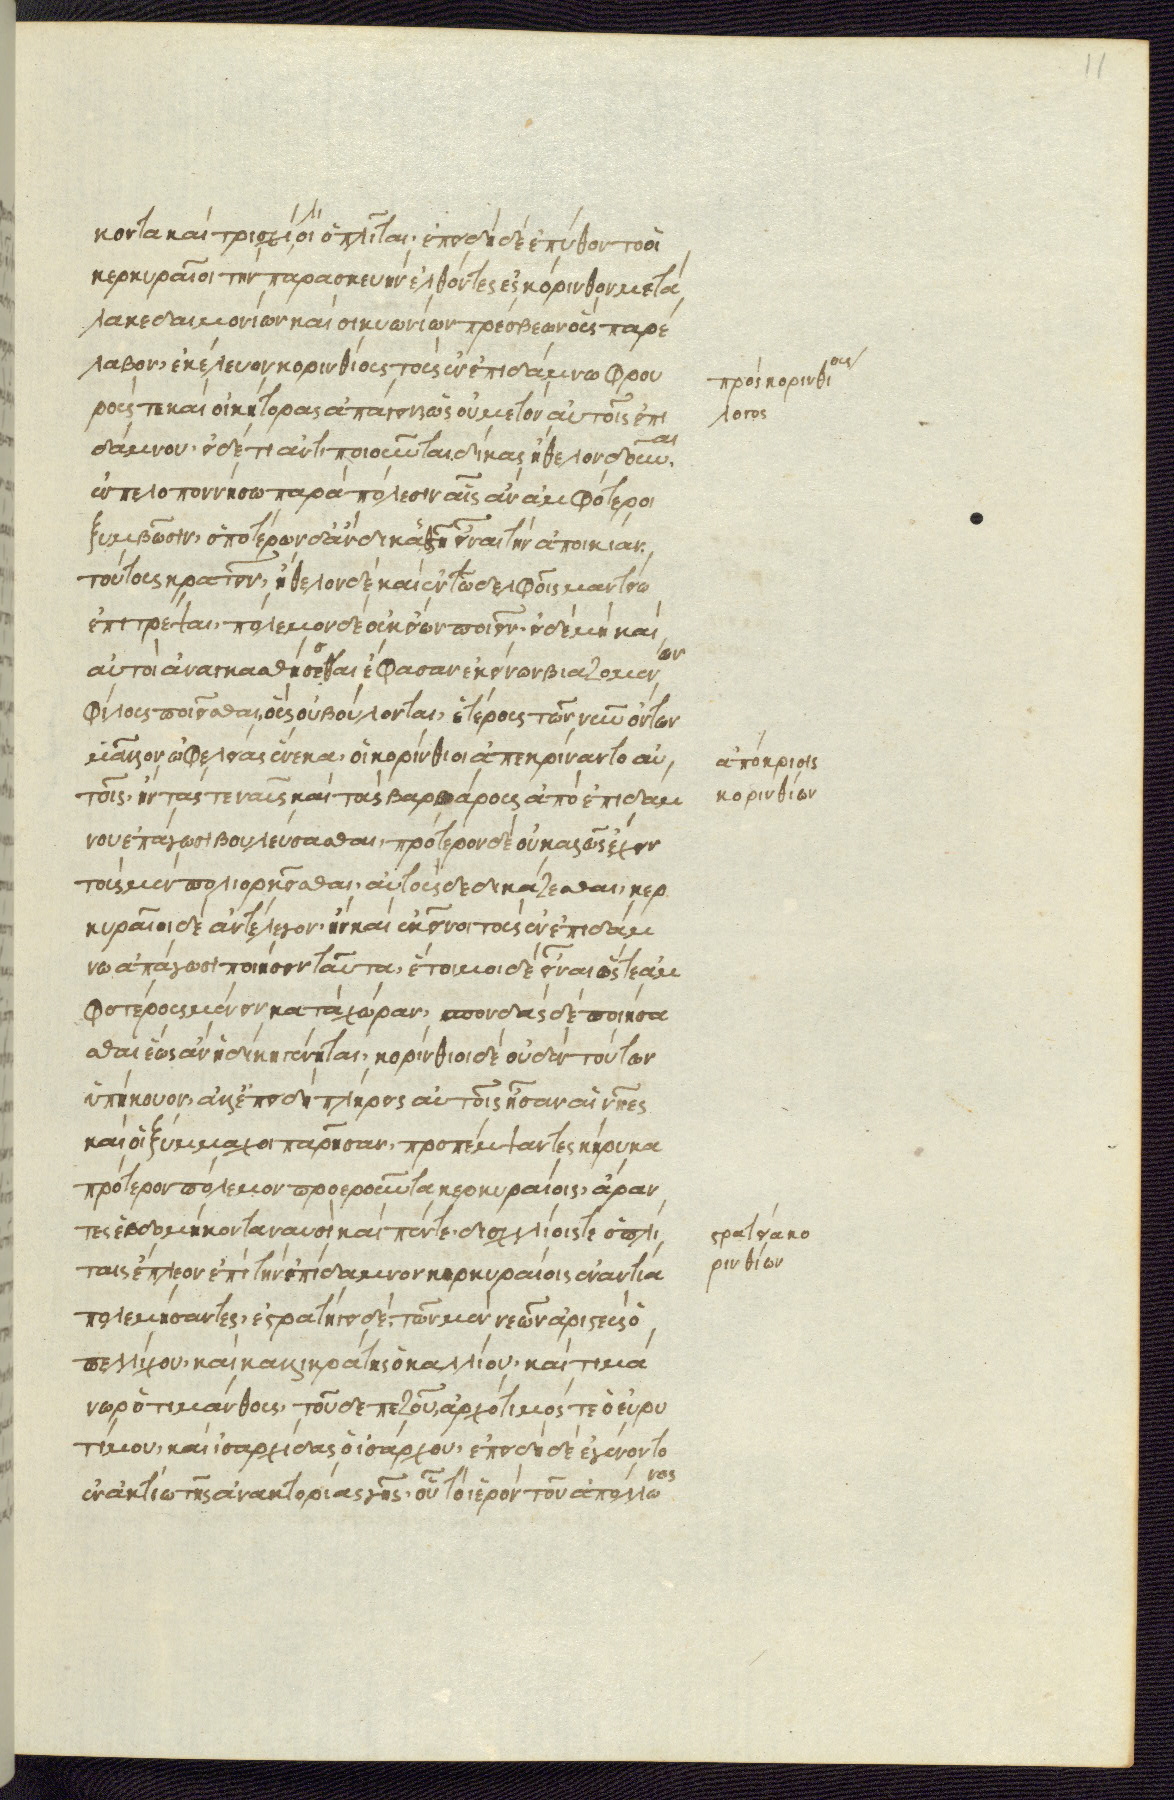 κοντα καὶ τρισχίλιοι ὁπλῖται· ἐπειδὴ δὲ ἐπύθοντο οἱ
κερκυραῖοι τὴν παρασκευὴν ἐλθόντες ἐς κόρινθον μετὰ
λακεδαιμονίων καὶ σικυωνίων πρέσβεων οὓς παρέ
λαβον, ἐκέλευον κορινθίους τοὺς ἐν ἐπιδάμνω φρου
πρὸς κορινθίους
ροὺς τε καὶ οἰκήτορας ἀπάγειν ὡς οὐ μετὸν αὐτοῖς ἐπι
λόγος
δάμνου· εἰ δέ τι ἀντιποιοῦνται, δίκας ἤθελον δοῦναι
ἐν πελοποννήσω παρὰ πόλεσιν αἷς ἂν ἀμφότεροι
ξυμβῶσιν, ὁποτέρων δ' ἂν δικασθῆ εἶναι τὴν ἀποικίαν,
τούτους κρατεῖν, ἤθελον δὲ καὶ ἐν τῶ δελφοῖς μαντείω
ἐπιτρέψαι, πόλεμον δὲ οὐκ εἴων ποιεῖν· εἰ δὲ μὴ καὶ
αὐτοὶ ἀναγκασθήσεσθαι ἔφασαν ἐκείνων βιαζομένων
φίλους ποιεῖσθαι οὓς οὐ βούλονται, ἑτέρους τῶν νῦν ὄντων
μᾶλλον ὠφελείας ἕνεκα, οἱ κορίνθιοι ἀπεκρίναντο αὐ
ἀπόκρισις
τοῖς, ἢν τάς τε ναῦς καὶ τοὺς βαρβάρους ἀπὸ ἐπιδάμ
κορινθίων
νου ἐπάγωσι βουλεύσασθαι, πρότερον δὲ οὐ καλῶς ἔχειν
τοὺς μὲν πολιορκεῖσθαι, αὐτοὺς δὲ δικάζεσθαι, κερ
κυραῖοι δὲ ἀντέλεγον, ἢν καὶ ἐκεῖνοι τοὺς ἐν ἐπιδάμ
νω ἀπάγωσι ποιήσειν ταῦτα, ἑτοῖμοι δὲ εἶναι ὥστε ἀμ
φοτέρους μένειν κατὰ χώραν, σπονδὰς δὲ ποιήσα
σθαι ἕως ἂν ἡ δίκη γένηται, κορίνθιοι δὲ οὐδὲν τούτων
ὑπήκουον, ἀλλ' ἐπειδὴ πλήρεις αὐτοῖς ἦσαν αἱ νῆες
καὶ οἱ ξύμμαχοι παρῆσαν, προπέμψαντες κήρυκα
πρότερον πόλεμον προεροῦντα κερκυραίοις, ἄραν
τες ἑβδομήκοντα ναυσὶ καὶ πέντε· δισχιλίοις τε ὁπλί
στρατεία κο
ταις ἔπλεον ἐπὶ τὴν ἐπίδαμνον κερκυραίοις ἐναντία
ρινθίων
πολεμήσαντες, ἐστρατήγει δὲ· τῶν μὲν νεῶν ἀριστεὺς ὁ
πελλίχου, καὶ καλλικράτης ὁ καλλίου, καὶ τιμά
νωρ ὁ τιμάνθους, τοῦ δὲ πεζοῦ, ἀρχότιμός τε ὁ εὐρυ
τίμου, καὶ ἰσαρχίδας ὁ ἰσάρχου, ἐπειδὴ δὲ ἐγένοντο
ἐν ἀκτίω τῆς ἀνακτορίας γῆς, οὗ τὸ ἱερὸν τοῦ ἀπόλλωνος
11